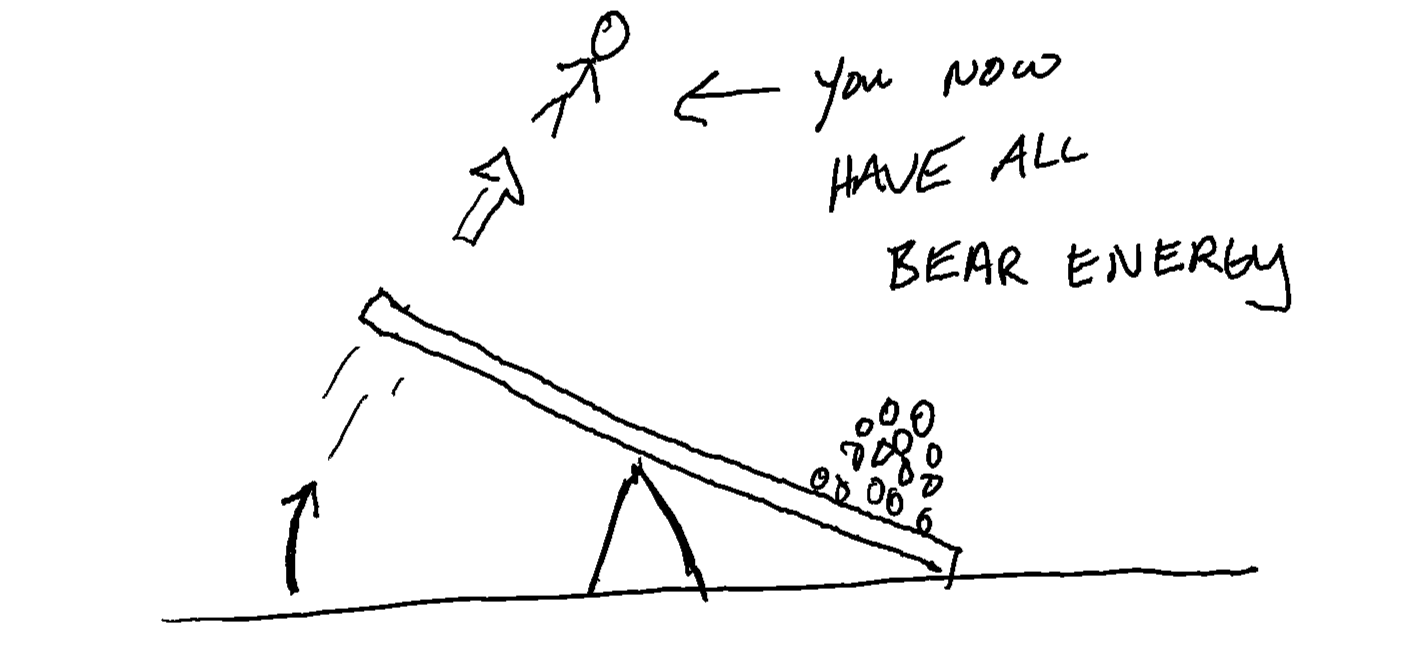 You NOW
HAVE ALL
BEAR ENERGY